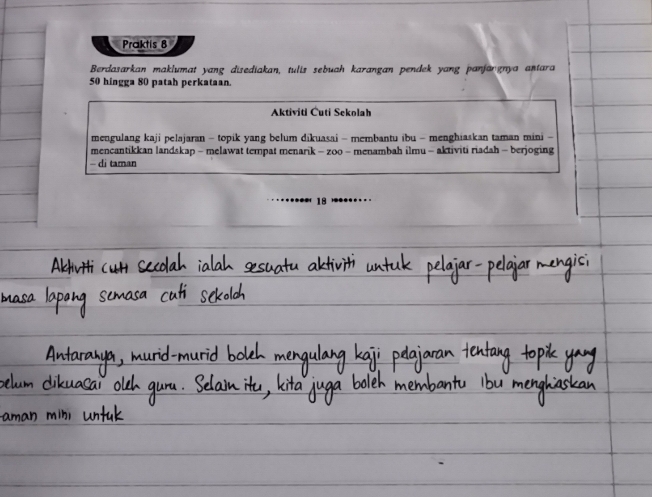 Praktis 8
Berdasarkan maklumat yang disediakan, tulis sebuah karangan pendek yang panjangnya antara
50 hingga 80 patah perkataan.
Aktiviti Cuti Sekolah
mengulang kaji pelajaran – topik yang belum dikuasai – membantu ibu – menghiaskan taman mini –
mencantikkan landskap – melawat tempat menarik – zoo – menambah ilmu – aktiviti riadah – berjoging
– di taman
18
Aktiviti cuti secolah ialah sesuatu aktiviti untuk pelajar-pelajar mengisi
masa lapang semasa cuti sekolah
Antaranya, murid-murid boleh mengulang kaji pelajaran tentang topik yang
belum dikuasai oleh guru. Selain itu, kita juga boleh membantu ibu menghiaskan
taman mini untuk